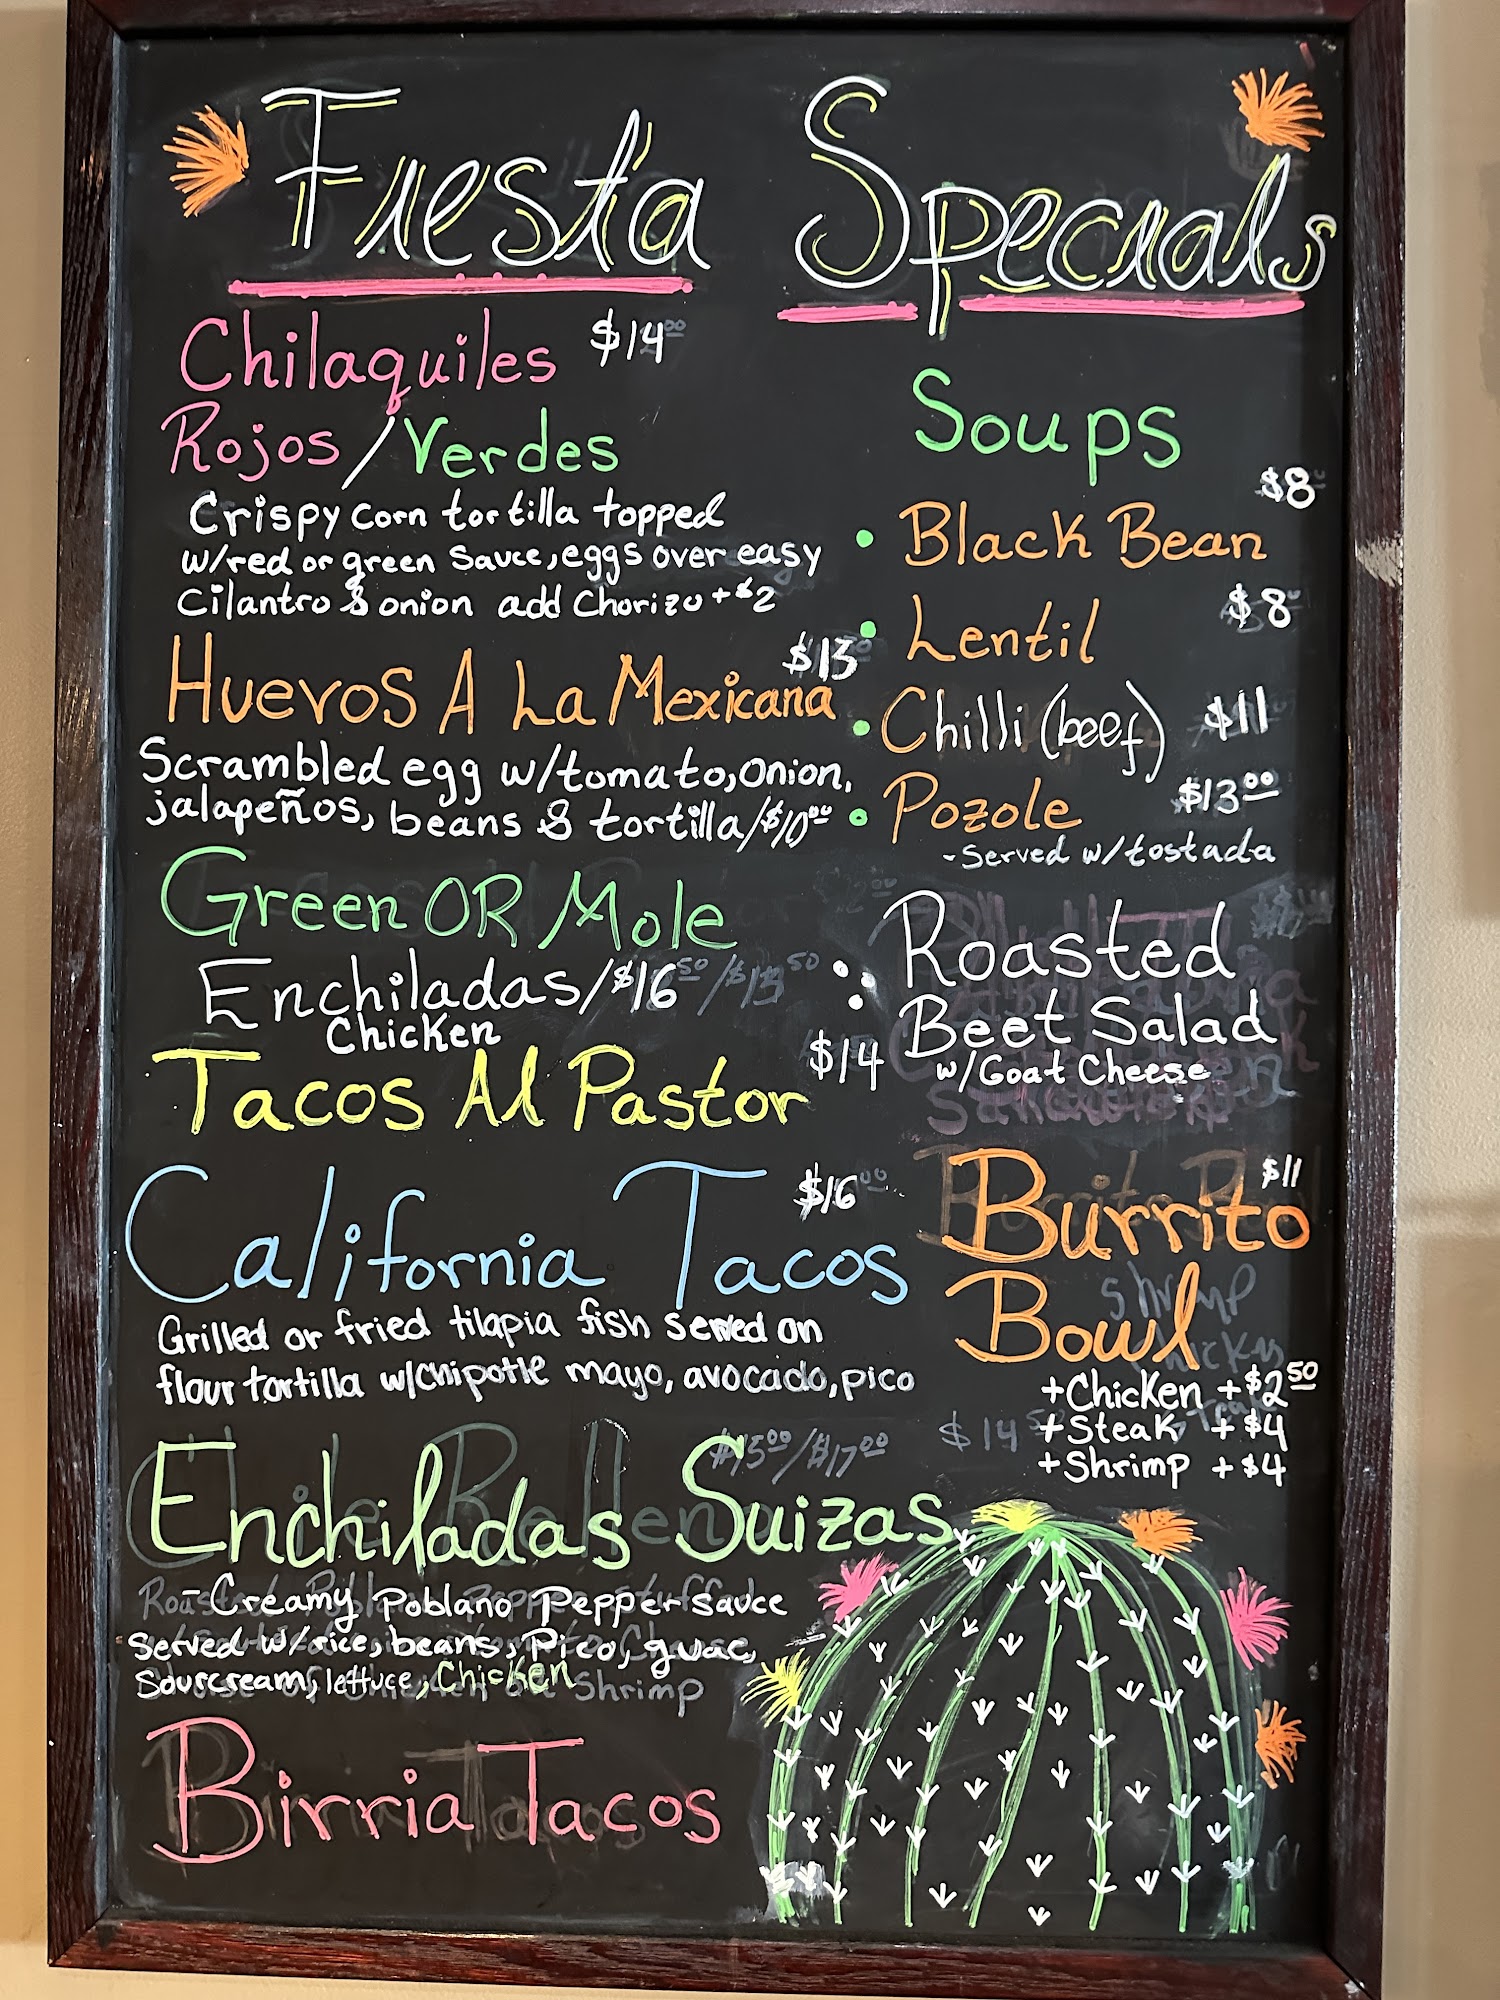 Fiesta Specials
Chilaquiles $14⁰⁰
Rojos/Verdes
Crispy corn tortilla topped
w/red or green Sauce, eggs over easy
Cilantro & onion add Chorizo +$2
Huevos A La Mexicana $13
Scrambled egg w/tomato, onion,
jalapeños, beans & tortilla/$10⁰⁰
Green OR Mole
Enchiladas/$16⁵⁰/$13⁵⁰
Chicken
Tacos Al Pastor $14
California Tacos $16⁰⁰
Grilled or fried tilapia fish served on
flour tortilla w/chipotle mayo, avocado, pico
$15⁰⁰/$17⁰⁰
Enchiladas Suizas
-Creamy Poblano Pepper sauce
Served w/rice, beans, Pico, guac,
Sourcream, lettuce, Chicken
Shrimp
Birria Tacos
Soups
• Black Bean $8
• Lentil $8
• Chilli (beef) $11
• Pozole $13⁰⁰
-Served w/tostada
Roasted
Beet Salad
w/Goat Cheese
Burrito $11
Bowl
Shrimp
+Chicken +$2⁵⁰
$14⁵⁰ +Steak +$4
+Shrimp +$4